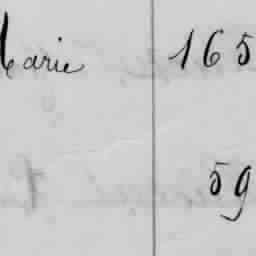 Marie 165
59